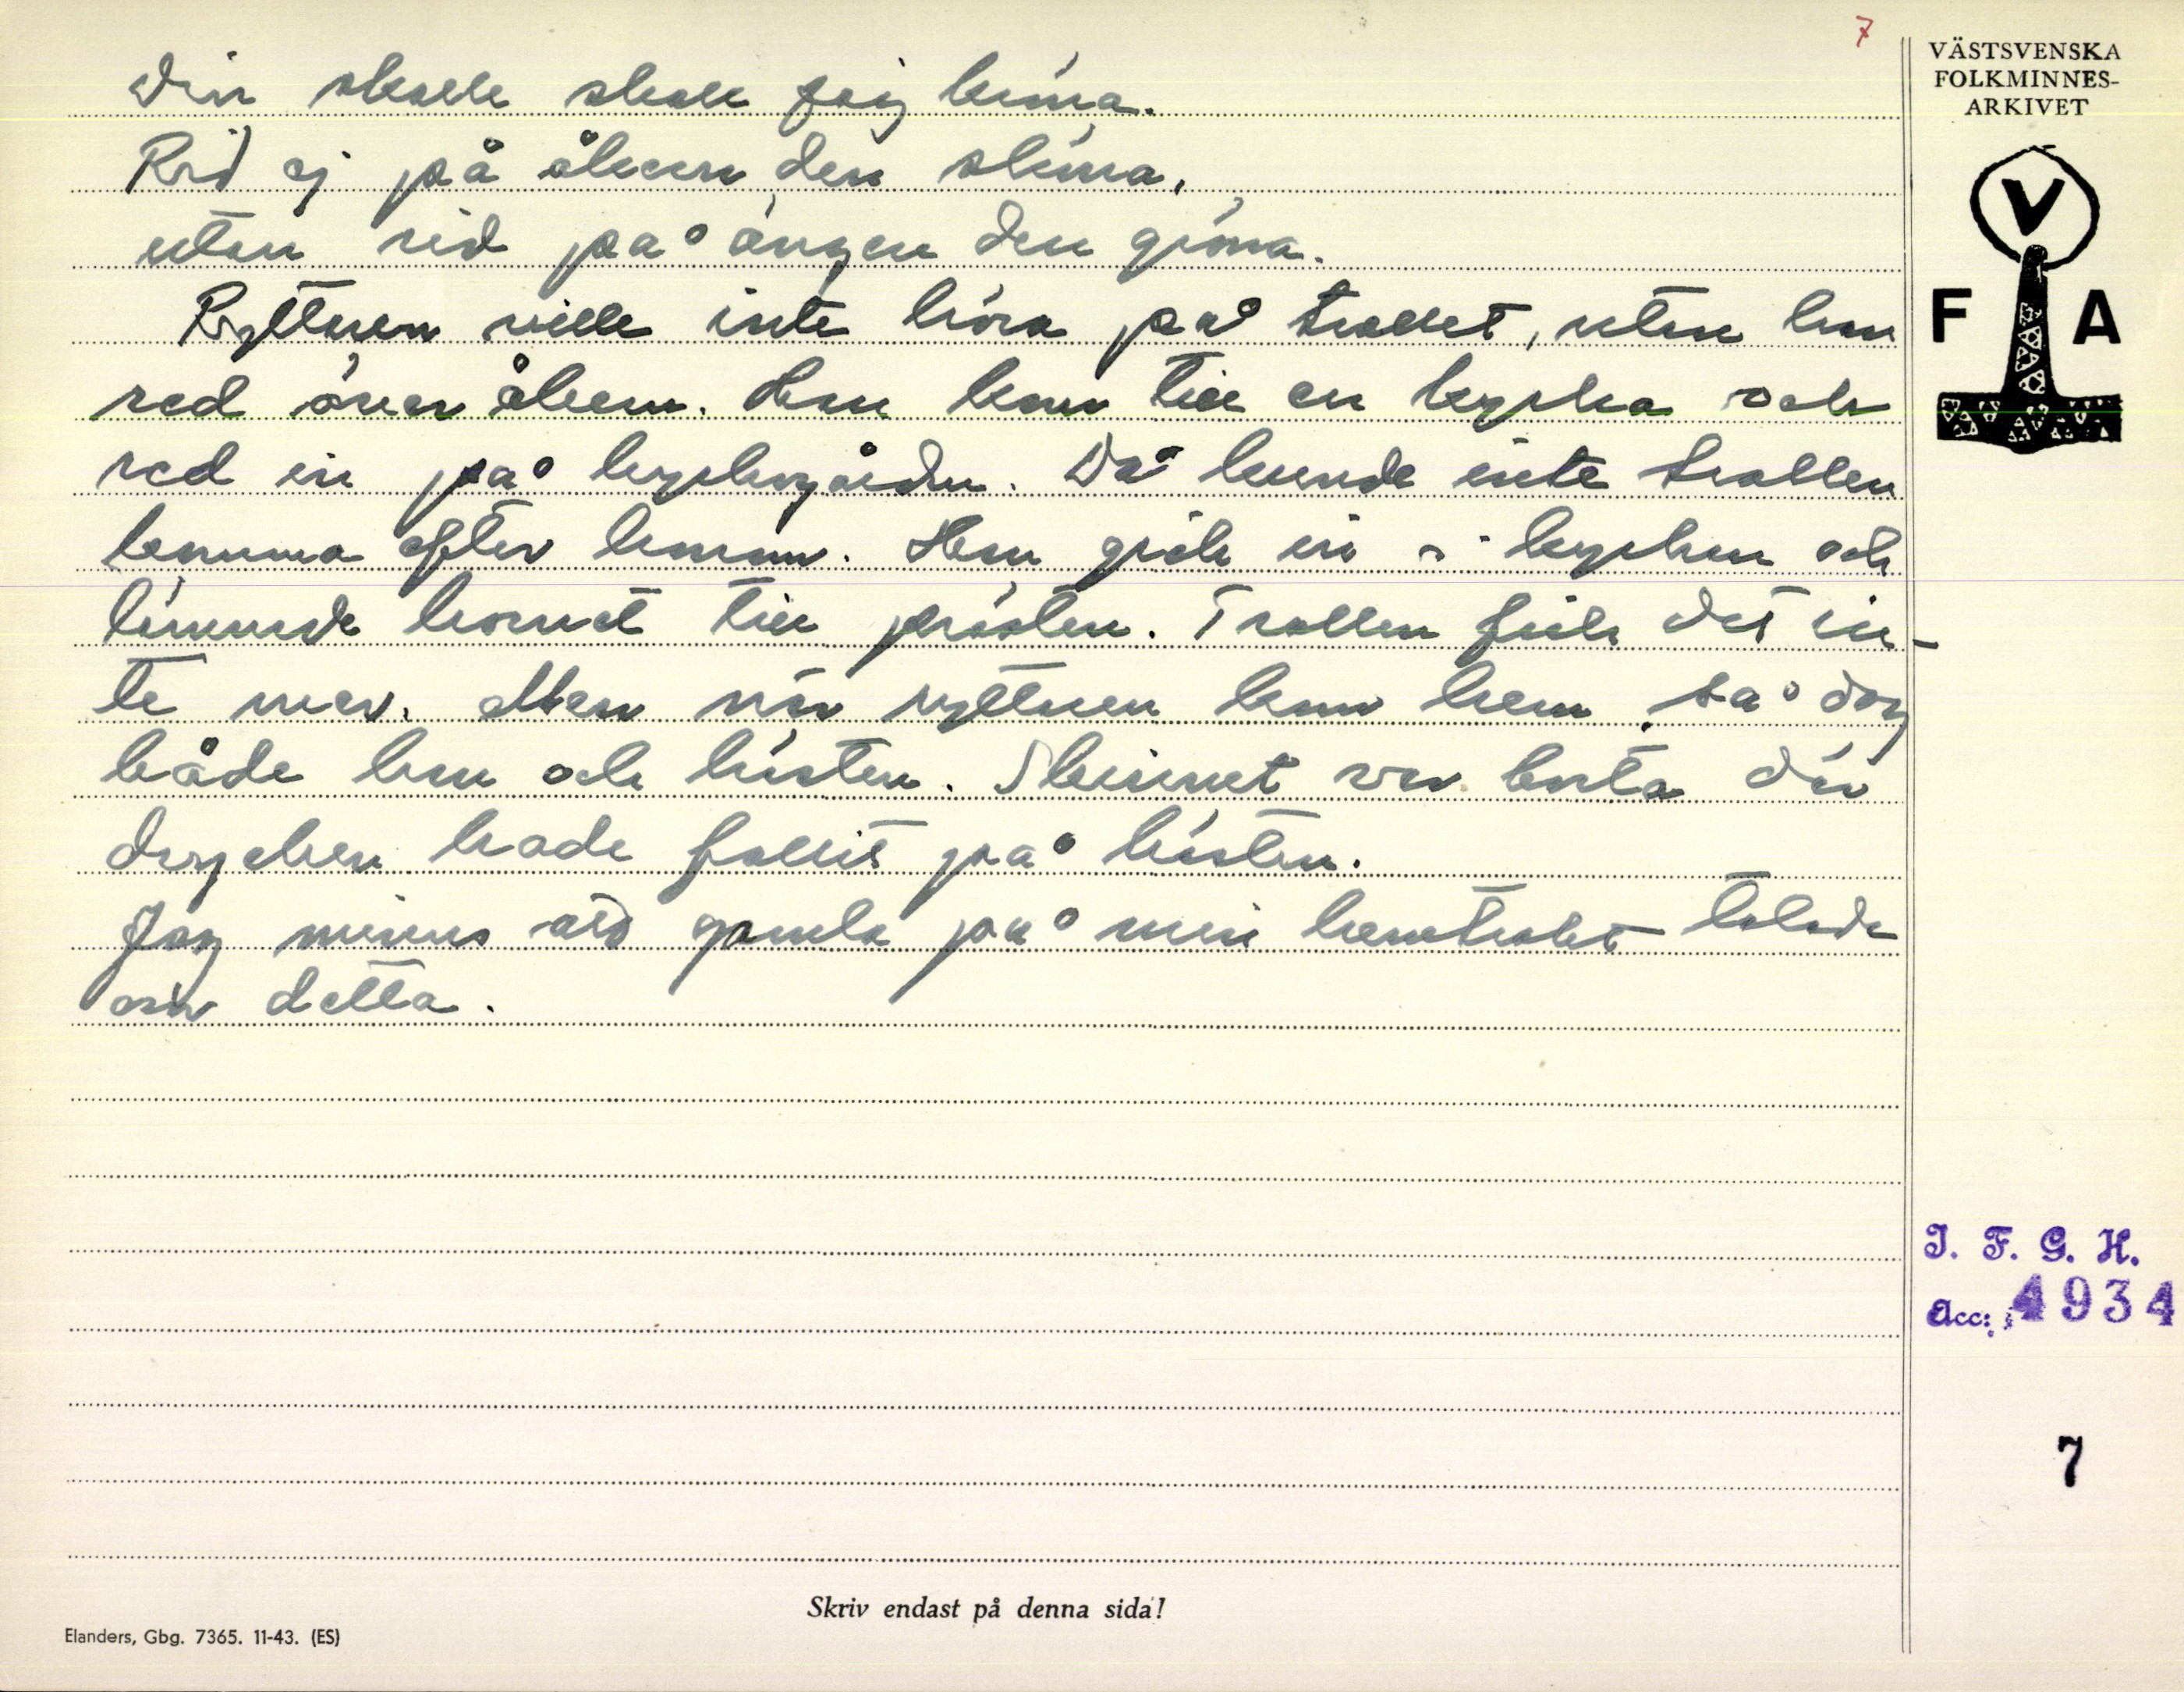 7
VÄSTSVENSKA
FOLKMINNES-
ARKIVET
V
F A
Din skalle skall jag
Rid ej på åkern den
utan rid på ängen den gröna.
Ryttaren ville inte höra på trollet, utan han
red över åkern. Han kom till en kyrka och
red in på kyrkogården. Då kunde inte trollen
komma efter honom. Han gick in i kyrkan och
lämnade hornet till prästen. Trollen fick det in-
te mer. Men när ryttaren kom hem, så dog
både han och hästen. Skinnet var borta där
drycken hade fallit på hästen.
Jag minns att gamla på min hemtrakt talade
om detta.
I. F. G. H.
Acc: 4934
7
Skriv endast på denna sida!
Elanders, Gbg. 7365. 11-43. (ES)